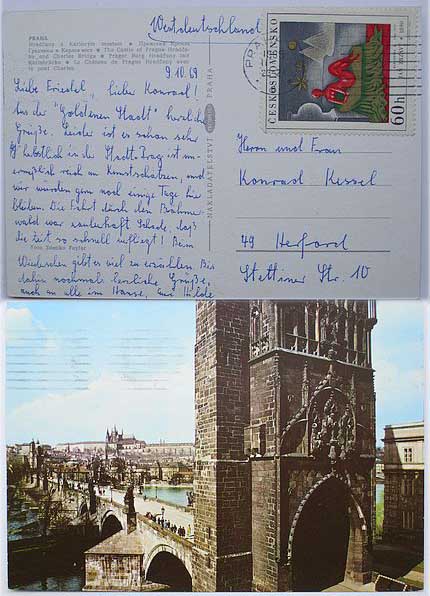 Westdeutschland
PRAHA
Hradčany s Karlovým mostem • Пражский Кремль
Градчаны и Карлов мост • The Castle of Prague Hradča-
ny and Charles Bridge • Prager Burg Hradčany mit
Karlsbrücke • Le Château de Prague Hradčany avec
le pont Charles
9.10.69
Liebe Friedel, lieber Konrad!
Aus der "Goldenen Stadt" herzliche
Grüße. Leider ist es schon sehr
herbstlich in der Stadt. Prag ist un-
ermeßlich reich an Kunstschätzen, und
wir würden gern noch einige Tage hier
bleiben. Die Fahrt durch den Böhmer-
wald war zauberhaft. Schade, daß
die Zeit so schnell verfliegt! Beim
Foto Zdenko Feyfar
Wiedersehen gibt es viel zu erzählen. Bis
dahin nochmals herzliche Grüße,
auch an alle im Hause, Eure Hilde
NAKLADATELSTVÍ PRAHA
PRA
ČESKOSLOVENSKO
60h
Herrn und Frau
Konrad Kessel
49 Herford
Stettiner Str. 10